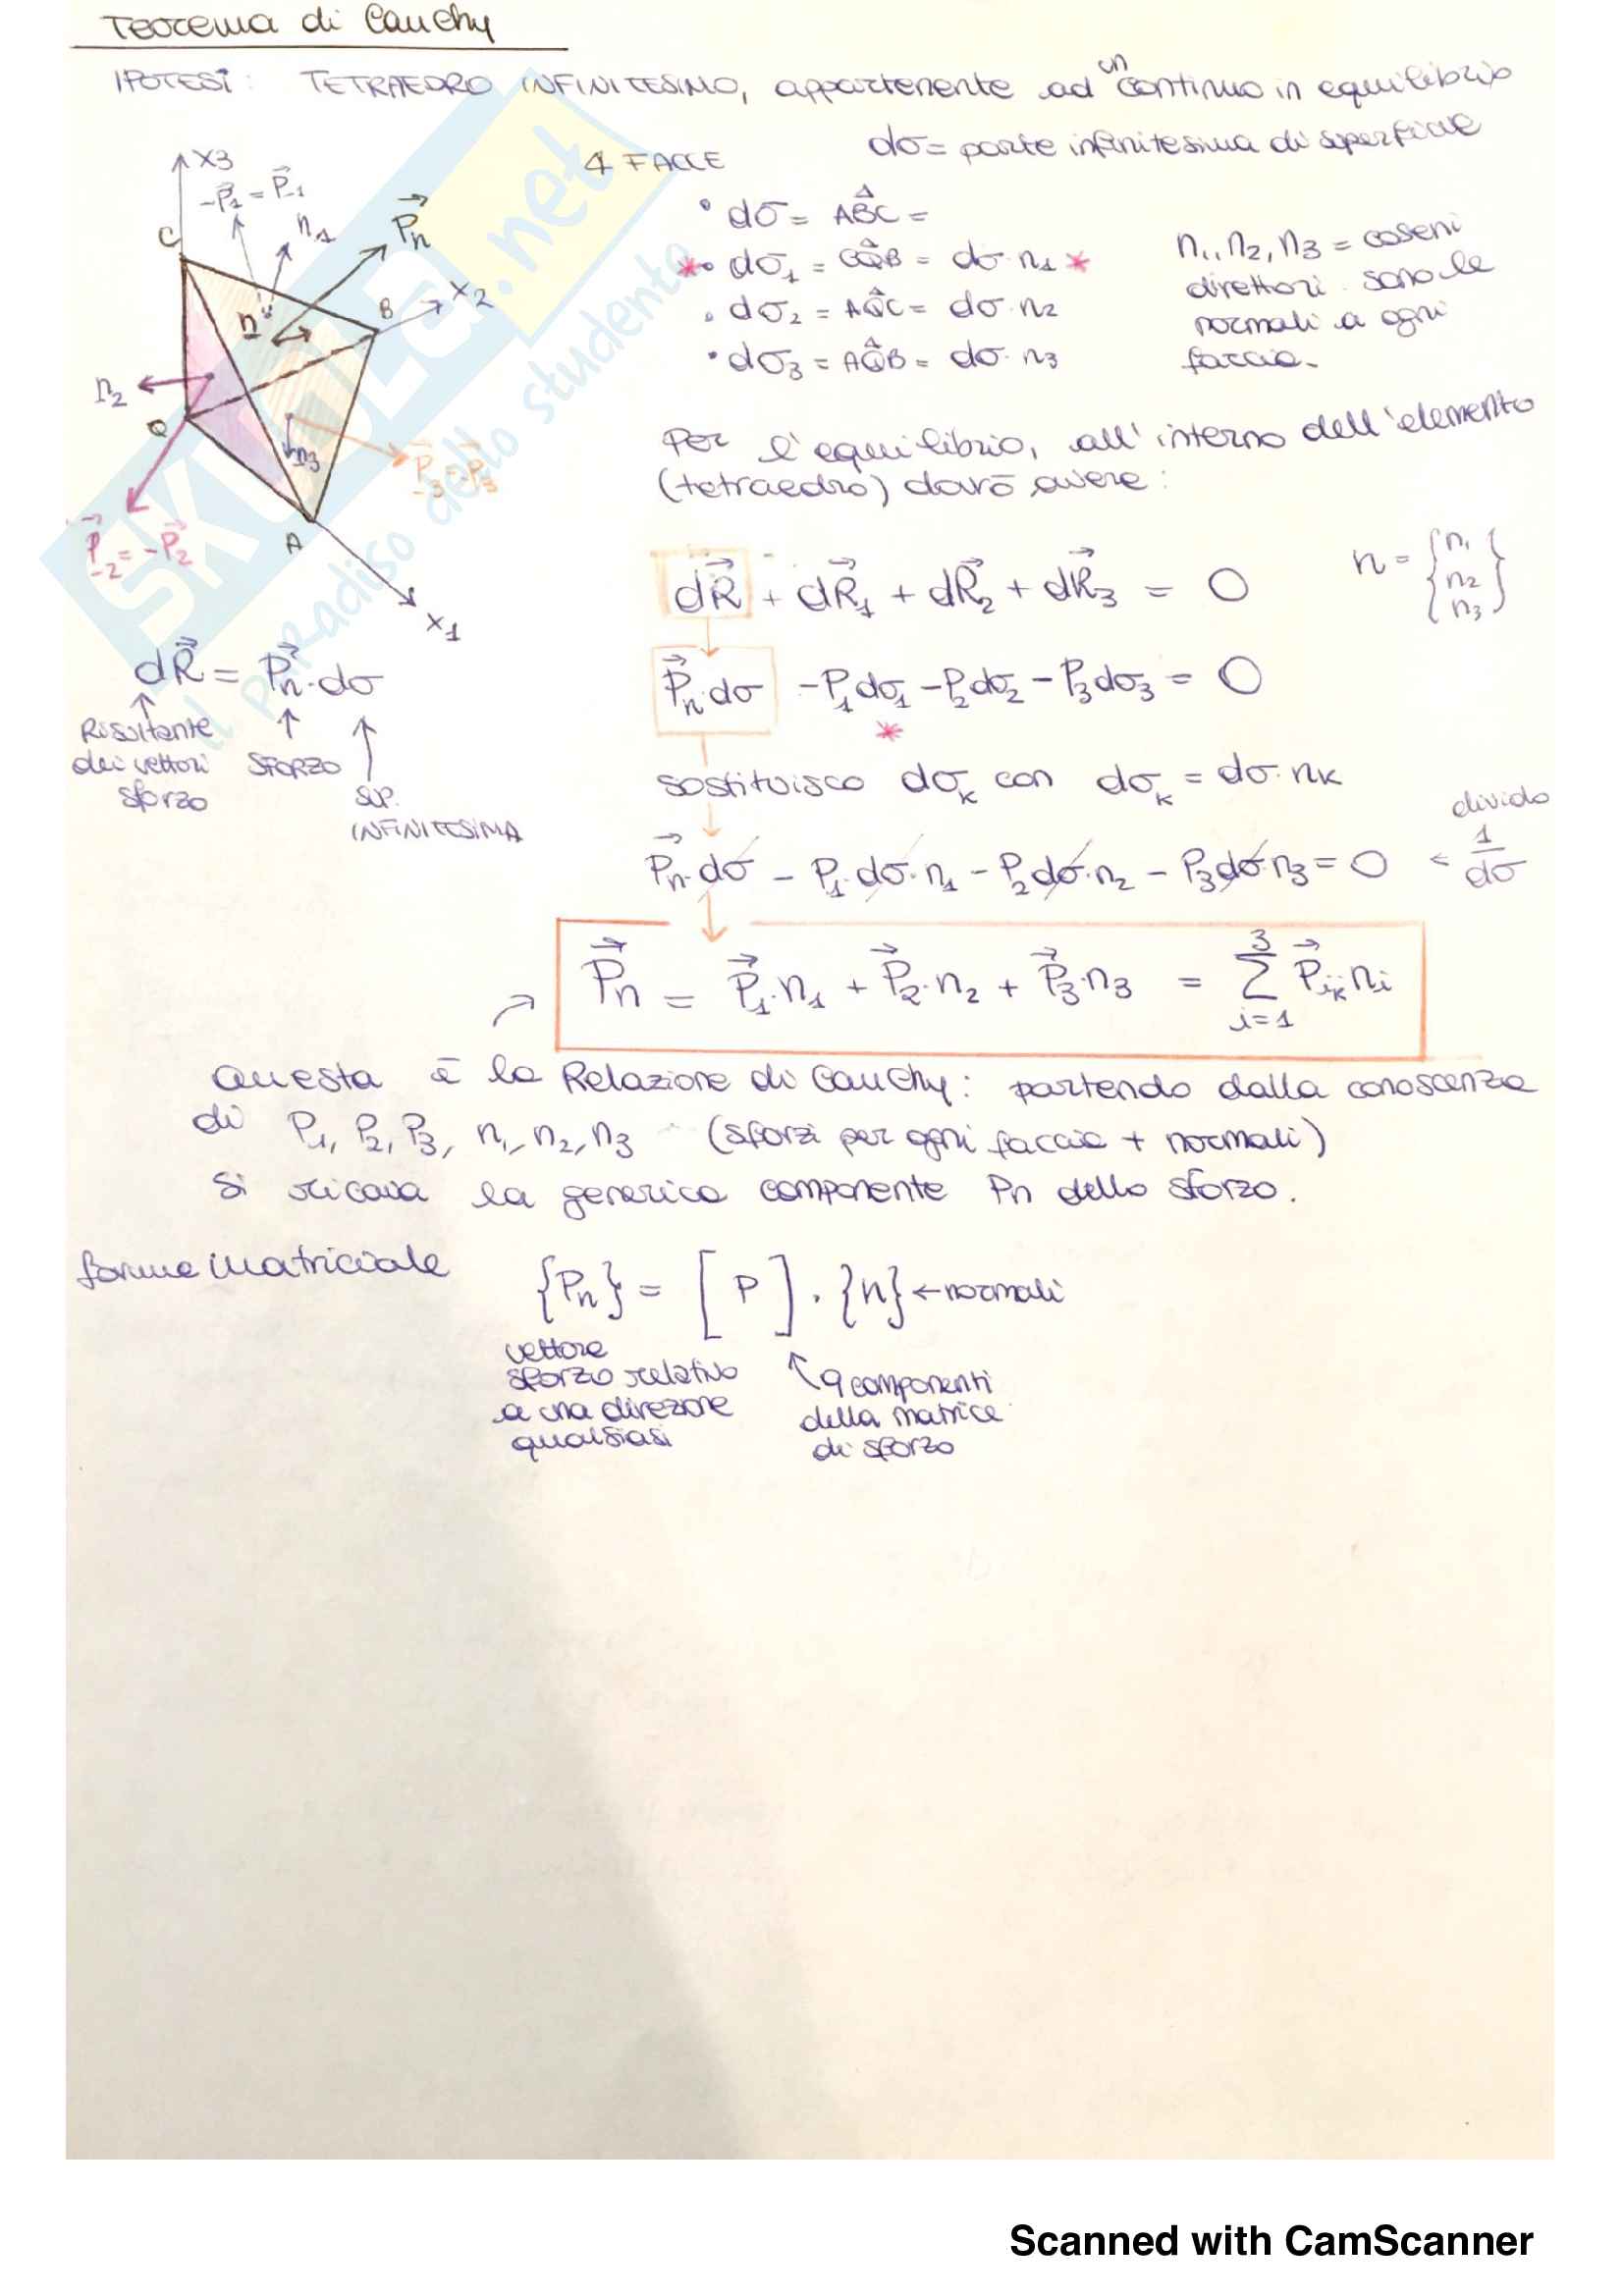 Teorema di Cauchy
IPOTESI: TETRAEDRO INFINITESIMO, appartenente ad un continuo in equilibrio
dσ = parte infinitesima di superficie
4 FACCE
• dσ = ABC =
* • dσ₁ = CQB = dσ · n₁ *
• dσ₂ = AQC = dσ · n₂
• dσ₃ = AQB = dσ · n₃
n₁, n₂, n₃ = coseni
direttori sono le
normali a ogni
faccia.
X3
-P₁ = P₋₁
n₁
Pn
C
B
X2
n
n₂
Q
n₃
P₋₃ = -P₃
P₋₂ = -P₂
A
X1
Per l'equilibrio, all'interno dell'elemento
(tetraedro) dovrò avere:
dR + dR₁ + dR₂ + dR₃ = 0
n = {n₁ n₂ n₃}
Pn · dσ - P₁dσ₁ - P₂dσ₂ - P₃dσ₃ = 0
*
dR = Pn · dσ
Risultante
dei vettori
sforzo
SFORZO
SUP.
INFINITESIMA
sostituisco dσₖ con dσₖ = dσ · nₖ
Pn · dσ - P₁ · dσ · n₁ - P₂dσ · n₂ - P₃dσ · n₃ = 0
divido
1/dσ
Pn = P₁ · n₁ + P₂ · n₂ + P₃ · n₃ = Σ i=1 3 Pᵢₖ nᵢ
Questa è la Relazione di Cauchy: partendo dalla conoscenza
di P₁, P₂, P₃, n₁, n₂, n₃ (sforzi per ogni faccia + normali)
si ricava la generica componente Pn dello sforzo.
forma matriciale
{Pn} = [P] · {n} ← normali
vettore
sforzo relativo
a una direzione
qualsiasi
9 componenti
della matrice
di sforzo
SKUOLA.net
il paradiso dello studente
Scanned with CamScanner